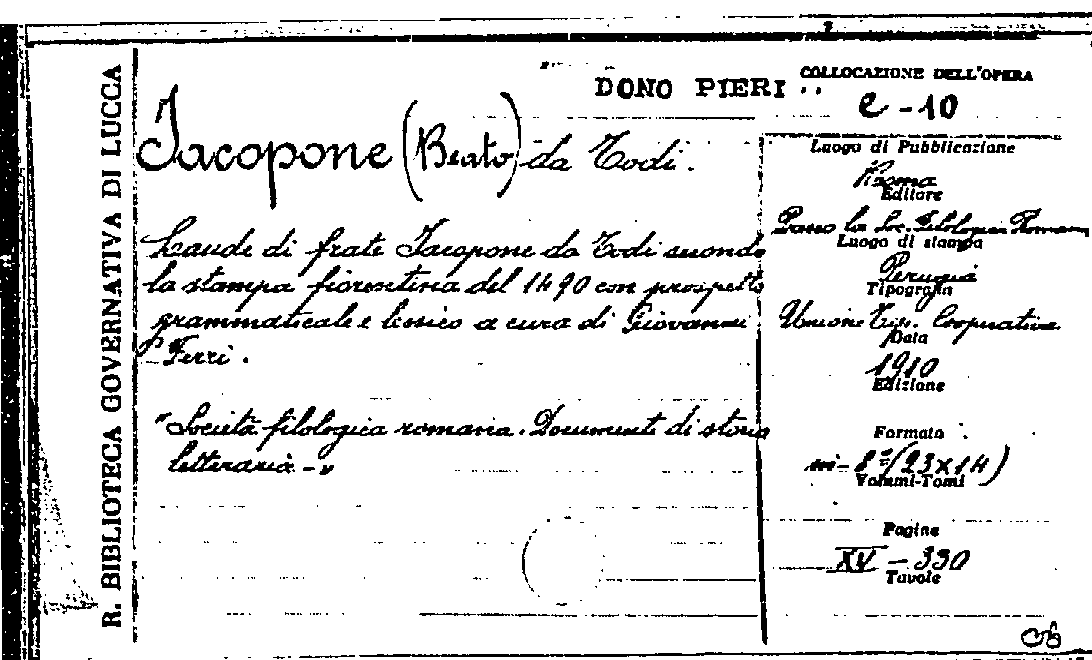 R. BIBLIOTECA GOVERNATIVA DI LUCCA
DONO PIERI
COLLOCAZIONE DELL'OPERA
e - 10
Jacopone (Beato) da Todi.
Laude di frate Jacopone da Todi secondo
la stampa fiorentina del 1490 con prospetto
grammaticale e lessico a cura di Giovanni
Ferri.
"Società filologica romana. Documenti di storia
letteraria -"
Luogo di Pubblicazione
Roma
Editore
Presso la Soc. Filologica Romana
Luogo di stampa
Perugia
Tipografia
Unione Tip. Cooperativa
Data
1910
Edizione
Formato
in-8° (23x14)
Volumi-Tomi
Pagine
XV - 330
Tavole